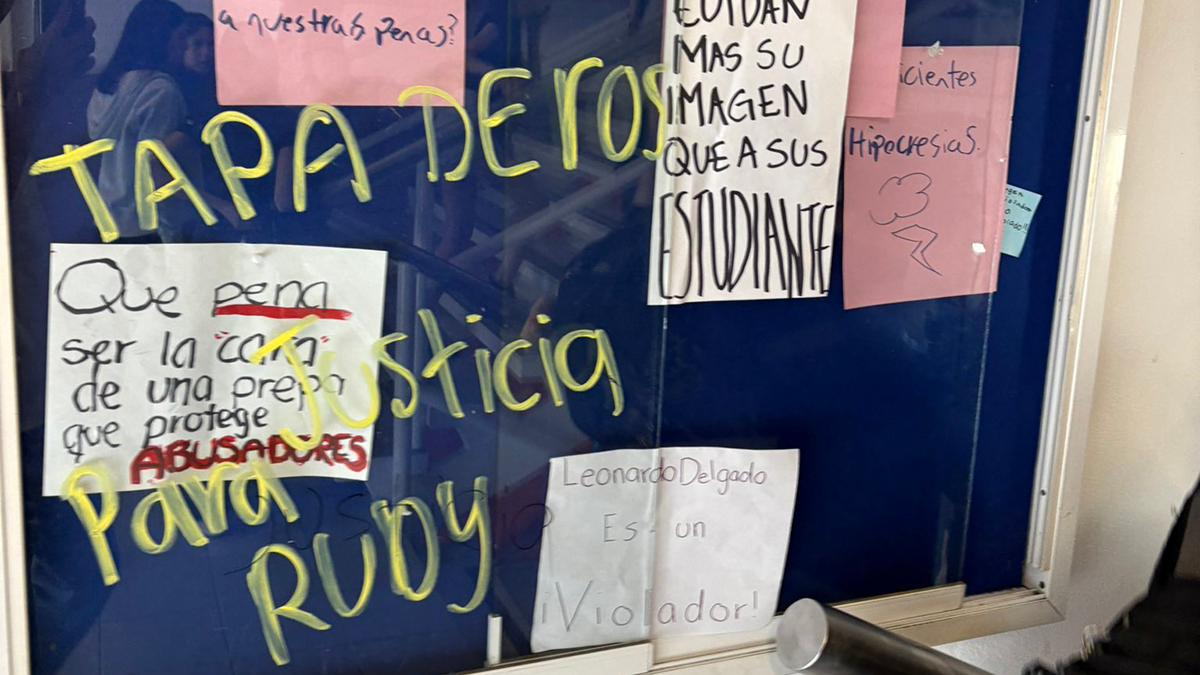 a nuestras penas?
TAPADEROS
CUIDAN
MAS SU
IMAGEN
QUE A SUS
ESTUDIANTE
icientes
Hipocresias.
Que pena
ser la "cara"
de una prepa
que protege
ABUSADORES
Justicia
Para
RUDY
Leonardo Delgado
Es un
¡Violador!